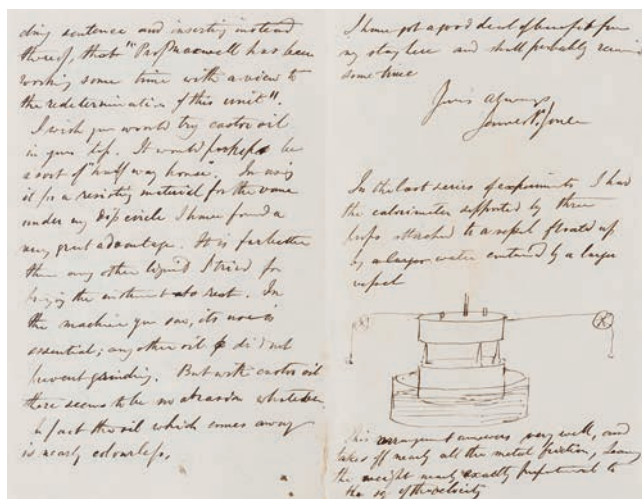 ding sentence and inserting instead
thereof, that "Prof Maxwell has been
working some time with a view to
the redetermination of this unit".
I wish you would try castor oil
in your top. It would perhaps be
a sort of "half way house". In using
it for a resisting material for the vane
under my dip circle I have found a
very great advantage. It is far better
than any other liquid I tried for
bringing the instrument to rest. In
the machine you saw, its use is
essential; any other oil did not
prevent grinding. But with castor oil
there seems to be no abrasion whatever.
In fact the oil which comes away
is nearly colourless.
I have got a good deal of benefit from
my stay here and shall probably remain
some time
Yours always
James P. Joule
In the last series of experiments I had
the calorimeter supported by three
attached to a vessel floated up
by a larger water contained by a larger
vessel
This arrangement answers very well, and
takes off nearly all the metal friction, leaving
the weight nearly exactly proportional to
the sq. of the velocity